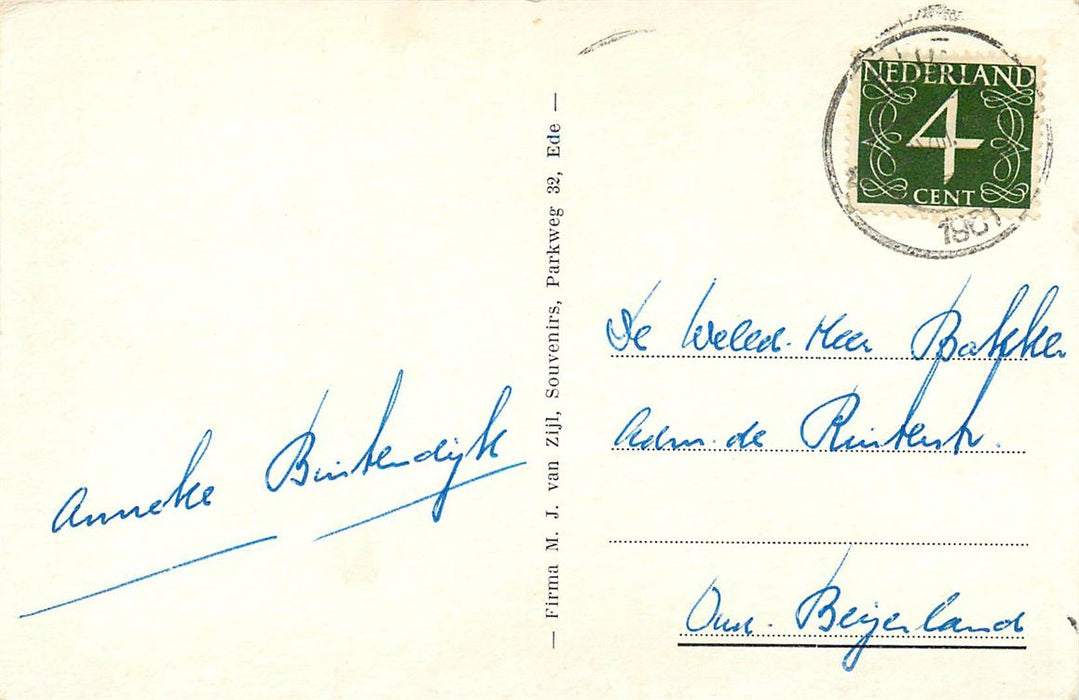 NEDERLAND
4
CENT
1961
Anneke Buitendijk
— Firma M. J. van Zijl, Souvenirs, Parkweg 32, Ede —
De Weled. Heer Bakker
Adm. de Ruiterstr.
Oud-Beijerland